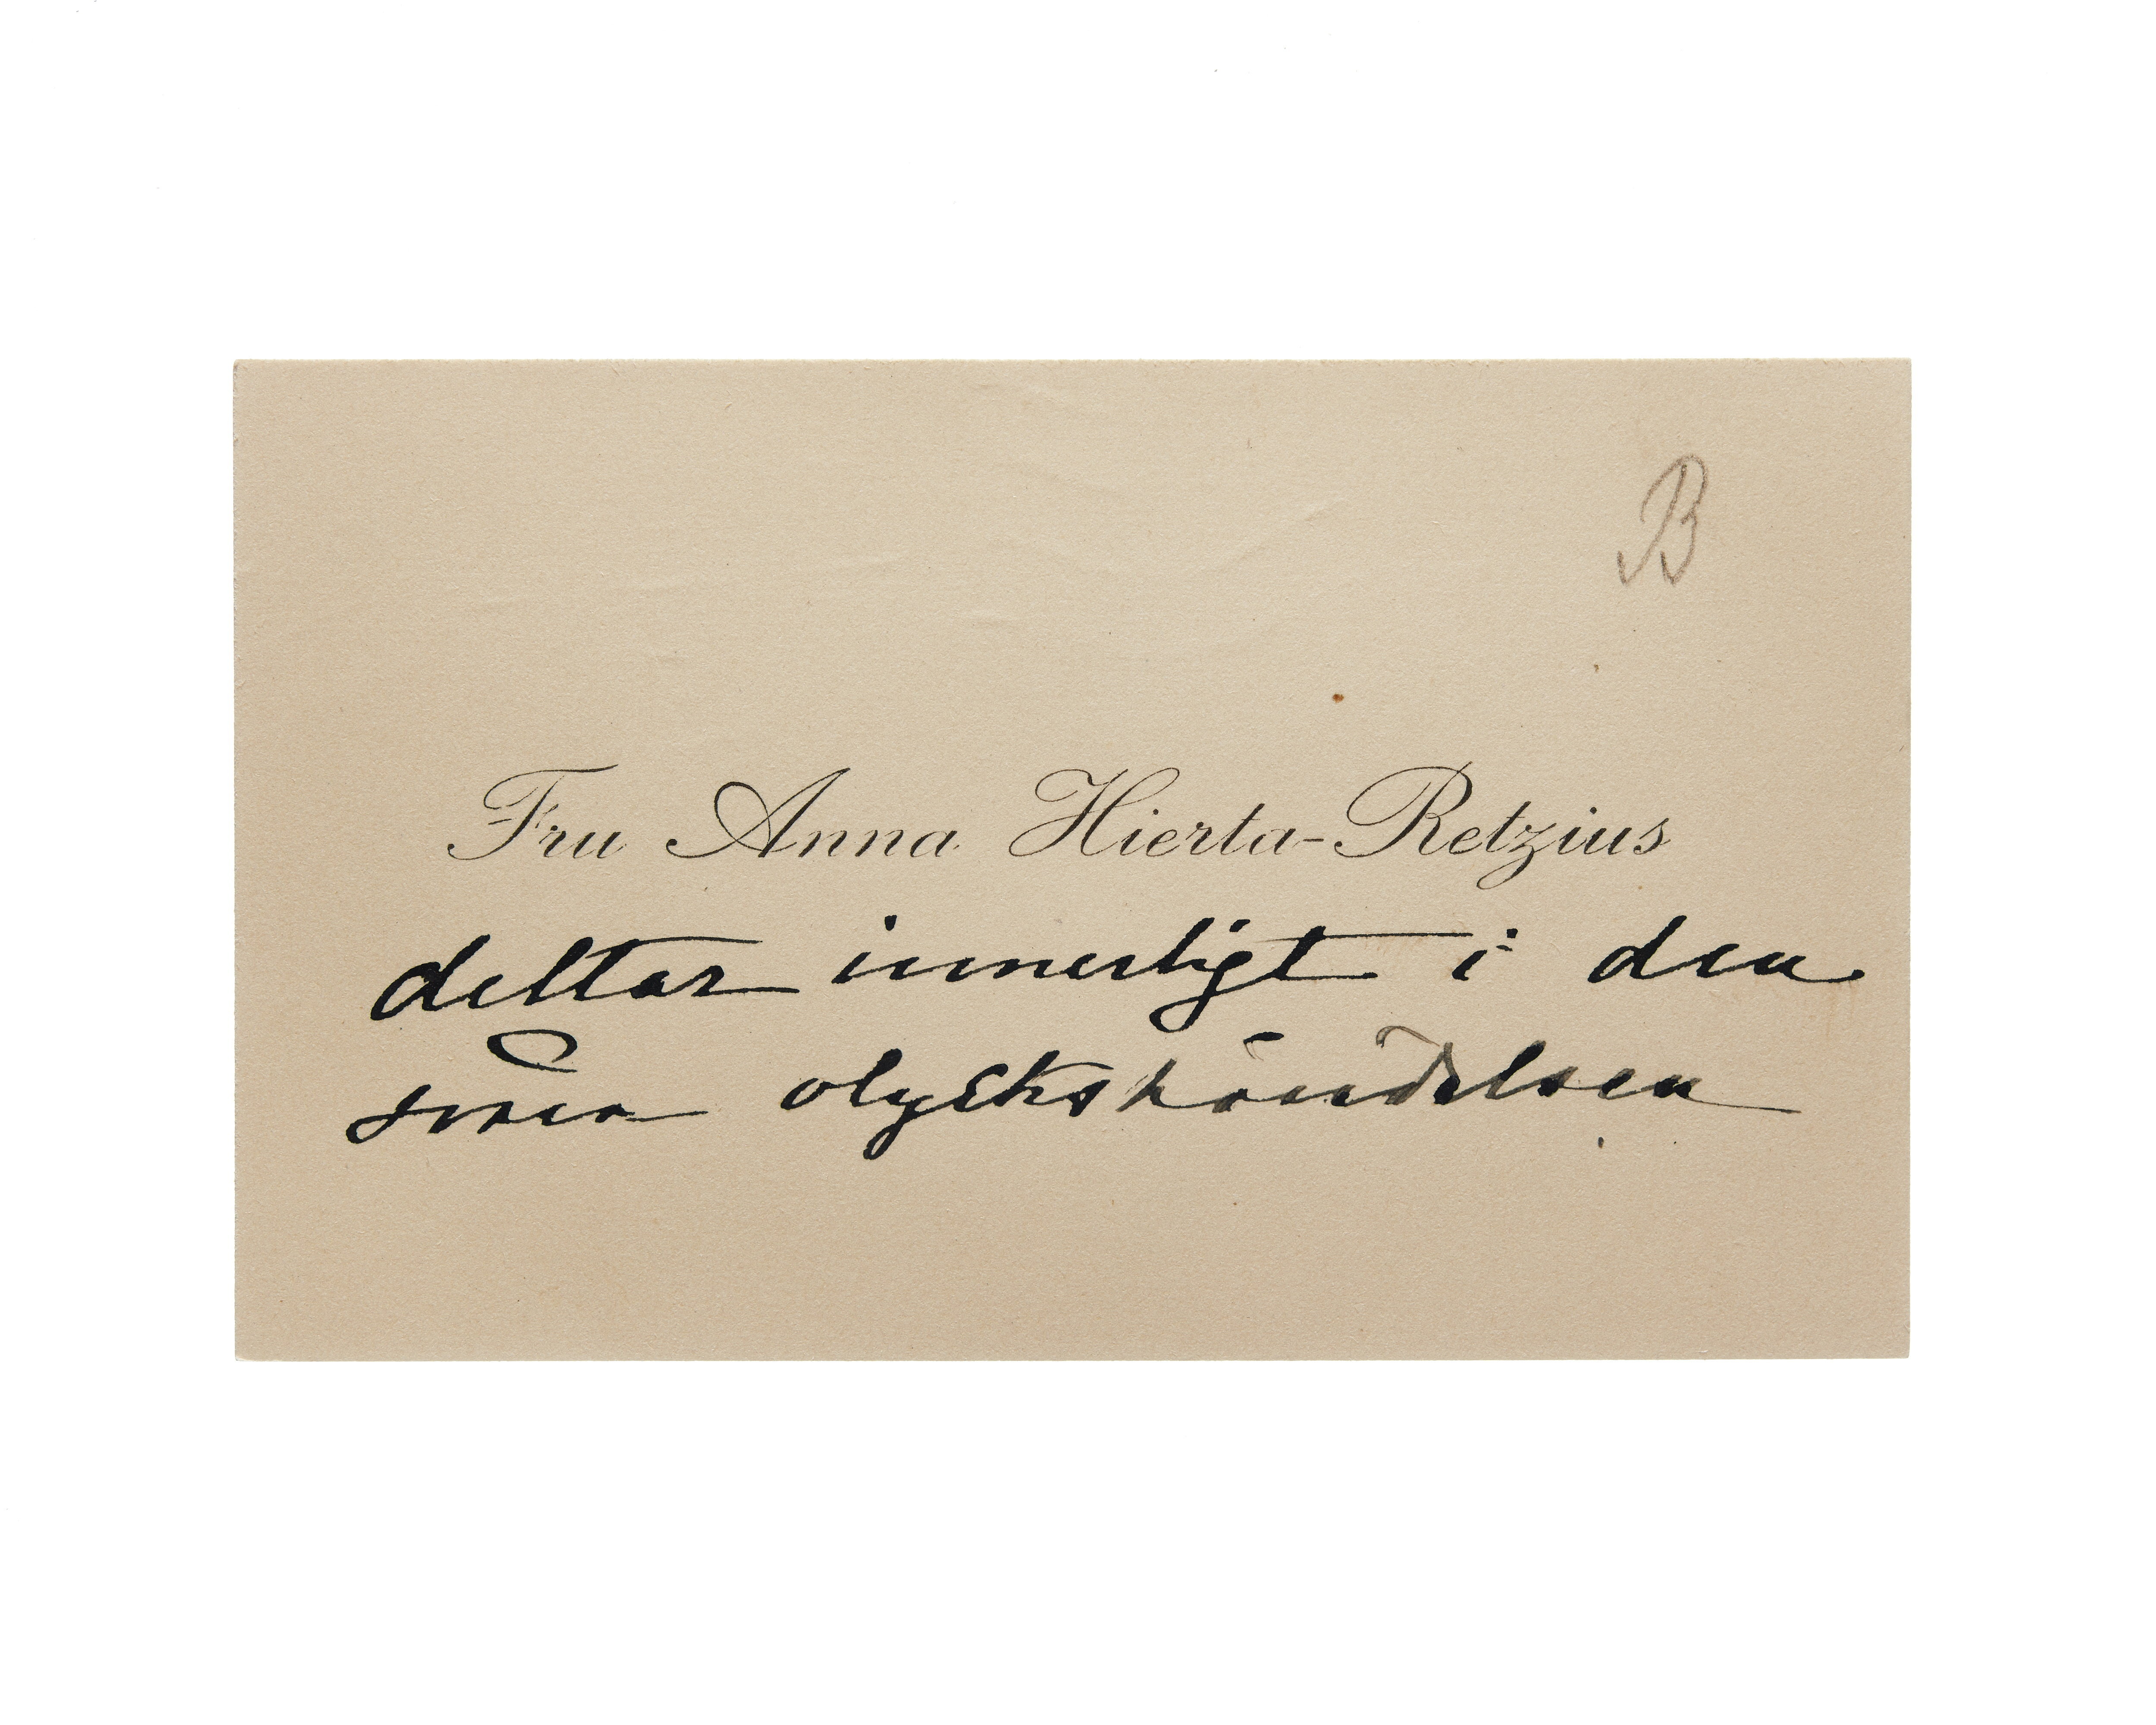 B
Fru Anna Hierta-Retzius
deltar innerligt i den
svåra olyckshändelsen